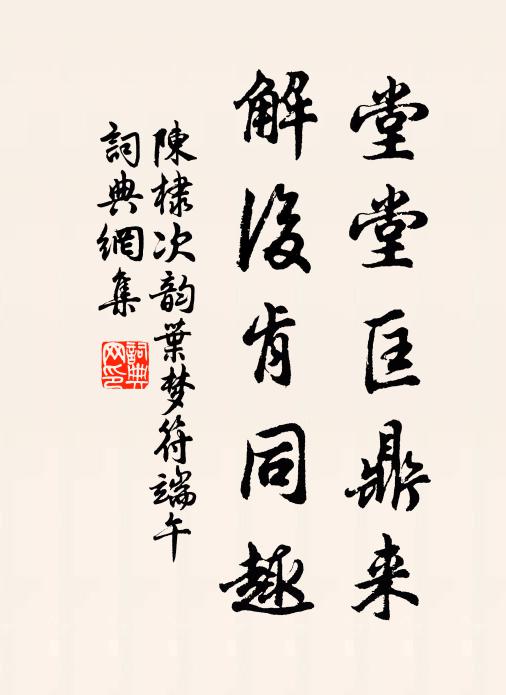 堂堂匡鼎来
解后肯同趣
陳棣次韵葉梦符端午
詞典網集
詞典网印